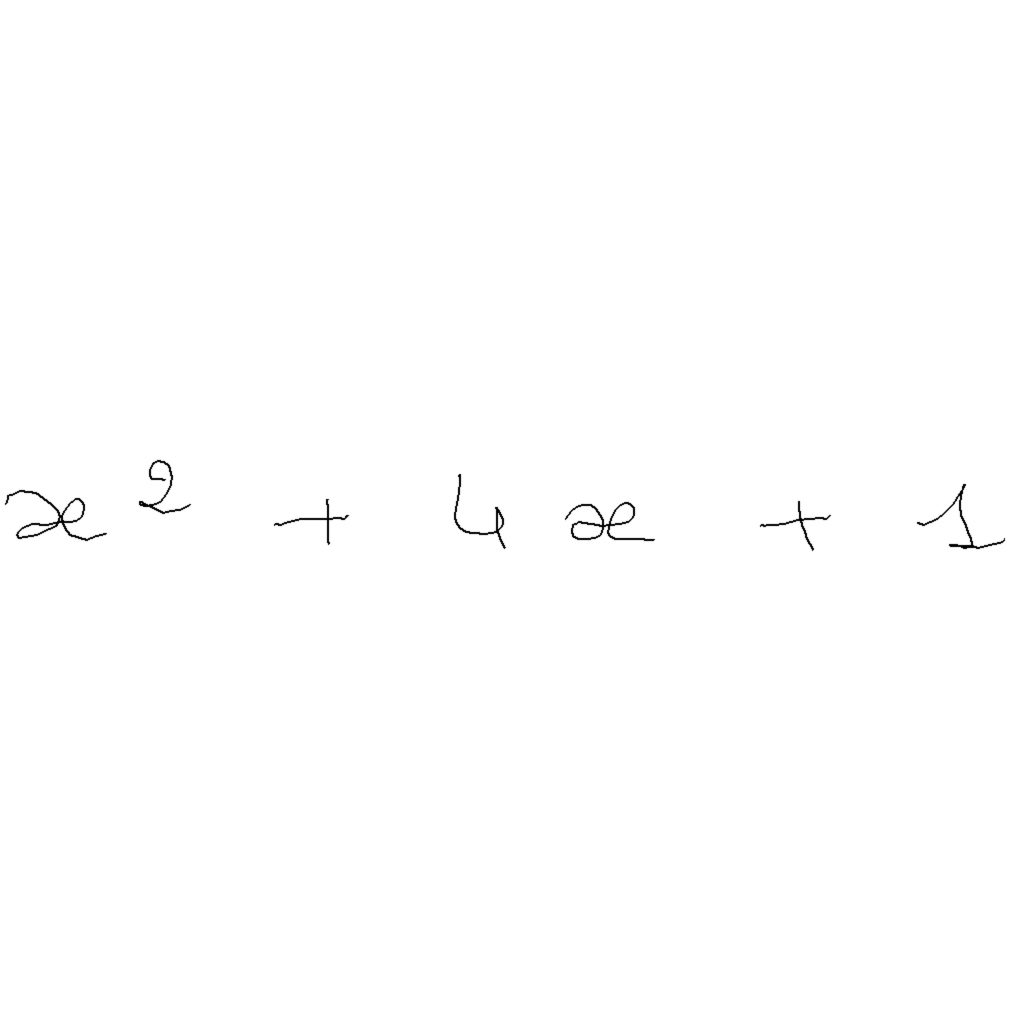 x² + 4x + 1